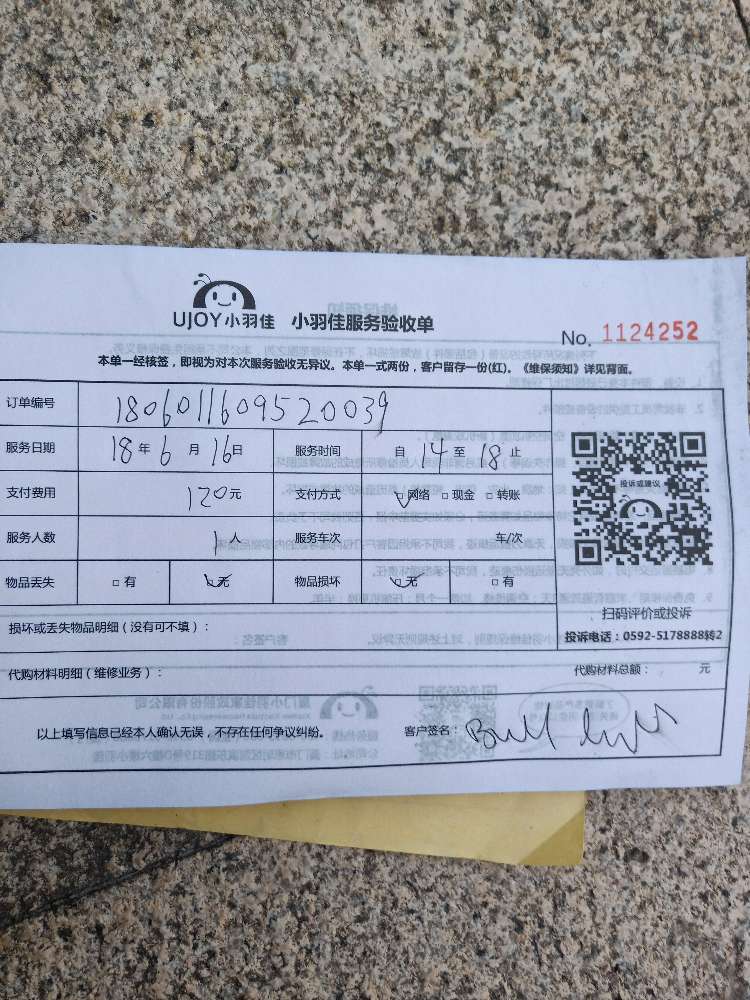 UJOY小羽佳 小羽佳服务验收单
No. 1124252
本单一经核签，即视为对本次服务验收无异议。本单一式两份，客户留存一份(红)。《维保须知》详见背面。
订单编号 1806011609520039
服务日期 18年6月16日 服务时间 自14至18止
支付费用 120元 支付方式 网络 现金 转账
服务人数 1人 服务车次 车/次
物品丢失 有 无 物品损坏 无 有
投诉或建议
扫码评价或投诉
损坏或丢失物品明细（没有可不填）：
投诉电话：0592-5178888转2
代购材料明细（维修业务）： 代购材料总额： 元
以上填写信息已经本人确认无误，不存在任何争议纠纷。 客户签名：